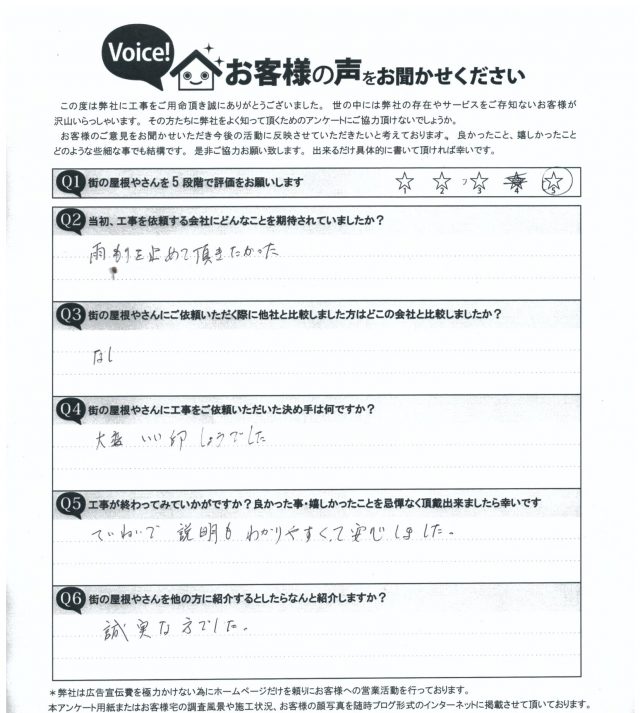 Voice!
お客様の声をお聞かせください
この度は弊社に工事をご用命頂き誠にありがとうございました。 世の中には弊社の存在やサービスをご存知ないお客様が
沢山いらっしゃいます。 その方たちに弊社をよく知って頂くためのアンケートにご協力頂けないでしょうか。
お客様のご意見をお聞かせいただき今後の活動に反映させていただきたいと考えております。 良かったこと、嬉しかったこと
どのような些細な事でも結構です。 是非ご協力お願い致します。 出来るだけ具体的に書いて頂ければ幸いです。
Q1 街の屋根やさんを5段階で評価をお願いします
1 2 3 4 5
Q2 当初、工事を依頼する会社にどんなことを期待されていましたか？
雨もりを止めて頂きたかった
Q3 街の屋根やさんにご依頼いただく際に他社と比較しました方はどこの会社と比較しましたか？
なし
Q4 街の屋根やさんに工事をご依頼いただいた決め手は何ですか？
大変 いい印しょうでした
Q5 工事が終わってみていかがですか？良かった事・嬉しかったことを忌憚なく頂戴出来ましたら幸いです
ていねいで 説明も わかりやすくて安心しました。
Q6 街の屋根やさんを他の方に紹介するとしたらなんと紹介しますか？
誠実な方でした。
＊弊社は広告宣伝費を極力かけない為にホームページだけを頼りにお客様への営業活動を行っております。
本アンケート用紙またはお客様宅の調査風景や施工状況、お客様の顔写真を随時ブログ形式のインターネットに掲載させて頂いております。